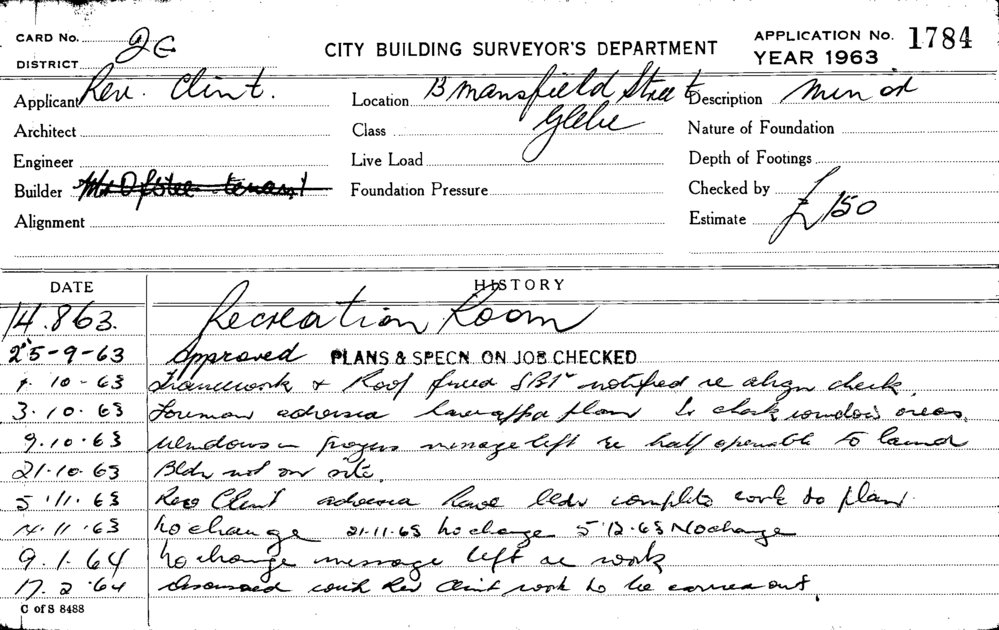 CARD No. 2G
DISTRICT
CITY BUILDING SURVEYOR'S DEPARTMENT
APPLICATION No. 1784
YEAR 1963
Applicant Rev. Clint.
Location 13 Mansfield Street
Glebe
Description Minor
Architect
Class
Nature of Foundation
Engineer
Live Load
Depth of Footings
Builder Mr tenant
Foundation Pressure
Checked by
Alignment
Estimate £150
DATE
HISTORY
14.8.63. Recreation Room
25-9-63 Approved PLANS & SPECN. ON JOB CHECKED
10-63 Framework & Roof fixed notified re align check.
3.10.63 Foreman advised have plan to check window areas.
9.10.63 Windows in progress message left re half openable to
21.10.63 Bldr not on site.
5.11.63 Rev Clint advised have bldr complete work to plan
14.11.63 No change 21.11.63 No change 5.12.63 No change
9.1.64 No change message left re work
17.2.64 Discussed with Rev Clint work to be carried out.
C of S 8488